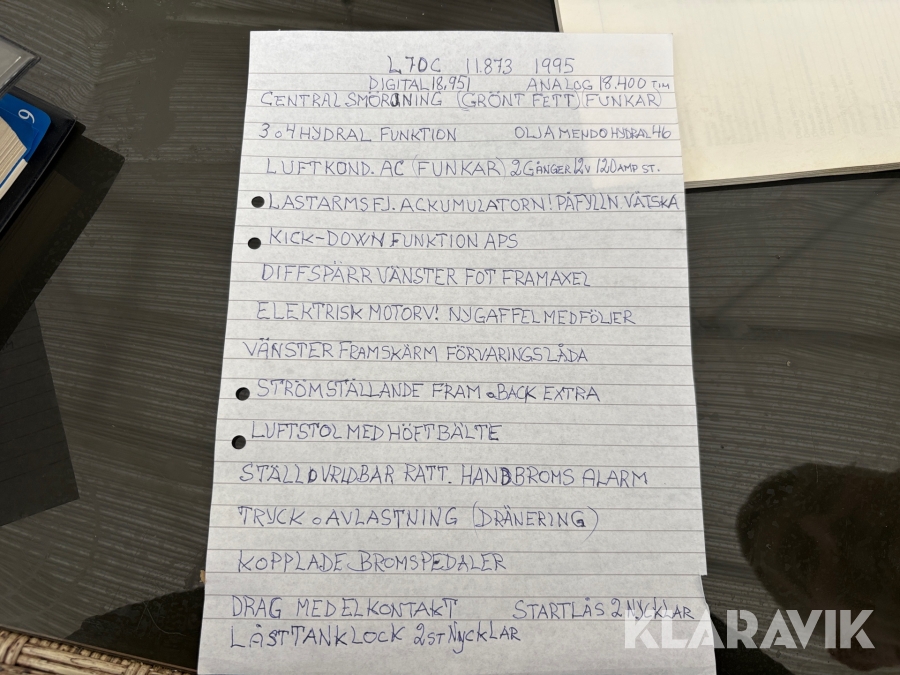 L70C 11.873 1995
DIGITAL 18,951 ANALOG 18.400 TIM
CENTRALSMÖRJNING (GRÖNT FETT) (FUNKAR)
3 o 4 HYDRAL FUNKTION OLJA MENDO HYDRAL 46
LUFTKOND. AC (FUNKAR) 2 GÅNGER 12V 120 AMP ST.
LASTARMSFJ. ACKUMULATORN! PÅFYLLN VÄTSKA
KICK-DOWN FUNKTION APS
DIFFSPÄRR VÄNSTER FOT FRAMAXEL
ELEKTRISK MOTORV! NYGAFFEL MEDFÖLJER
VÄNSTER FRAMSKÄRM FÖRVARINGSLÅDA
STRÖMSTÄLLANDE FRAM o BACK EXTRA
LUFTSTOL MED HÖFTBÄLTE
STÄLL O VRIDBAR RATT. HANDBROMS ALARM
TRYCK o AVLASTNING (DRÄNERING)
KOPPLADE BROMSPEDALER
DRAG MED ELKONTAKT STARTLÅS 2 NYCKLAR
LÅSTTANKLOCK 2 ST NYCKLAR
KLARAVIK
6